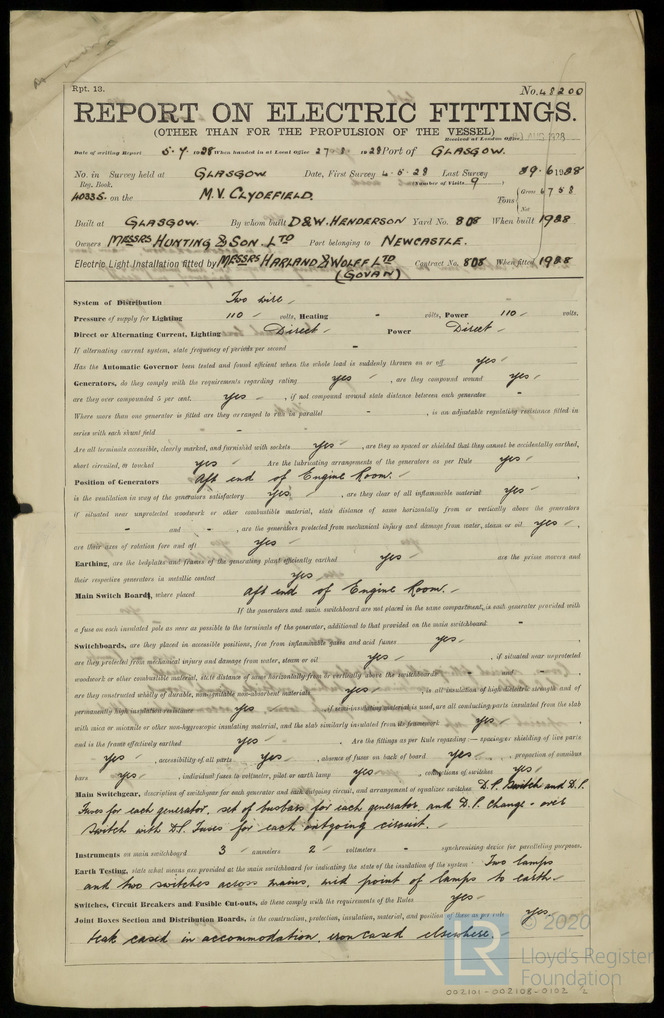 Rpt. 13.
No. 48200
REPORT ON ELECTRIC FITTINGS.
(OTHER THAN FOR THE PROPULSION OF THE VESSEL)
Received at London Office
Date of writing Report 5.7.1928 When handed in at Local Office 27.8.1928 Port of GLASGOW.
No. in Survey held at GLASGOW Date, First Survey 4.5.28 Last Survey 29.6.1928
Reg. Book. (Number of Visits 9)
40335. on the M.V. CLYDEFIELD. Tons Gross 6758 Net
Built at GLASGOW. By whom built D&W. HENDERSON Yard No. 808 When built 1928
Owners MESSRS HUNTING & SON. LTD Port belonging to NEWCASTLE.
Electric Light Installation fitted by MESSRS HARLAND & WOLFF LTD Contract No. 808 When fitted 1928
(GOVAN)
System of Distribution Two wire
Pressure of supply for Lighting 110 volts, Heating - volts, Power 110 volts.
Direct or Alternating Current, Lighting Direct Power Direct
If alternating current system, state frequency of periods per second -
Has the Automatic Governor been tested and found efficient when the whole load is suddenly thrown on or off yes
Generators, do they comply with the requirements regarding rating yes, are they compound wound yes
are they over compounded 5 per cent. yes, if not compound wound state distance between each generator -
Where more than one generator is fitted are they arranged to run in parallel -, is an adjustable regulating resistance fitted in
series with each shunt field -
Are all terminals accessible, clearly marked, and furnished with sockets yes, are they so spaced or shielded that they cannot be accidentally earthed,
short circuited, or touched yes Are the lubricating arrangements of the generators as per Rule yes
Position of Generators Aft end of Engine Room.
is the ventilation in way of the generators satisfactory yes, are they clear of all inflammable material yes
if situated near unprotected woodwork or other combustible material, state distance of same horizontally from or vertically above the generators
- and -, are the generators protected from mechanical injury and damage from water, steam or oil yes
are their axes of rotation fore and aft yes
Earthing, are the bedplates and frames of the generating plant efficiently earthed yes are the prime movers and
their respective generators in metallic contact yes
Main Switch Boards, where placed Aft end of Engine Room.
If the generators and main switchboard are not placed in the same compartment, is each generator provided with
a fuse on each insulated pole as near as possible to the terminals of the generator, additional to that provided on the main switchboard -
Switchboards, are they placed in accessible positions, free from inflammable gases and acid fumes yes.
are they protected from mechanical injury and damage from water, steam or oil yes, if situated near unprotected
woodwork or other combustible material, state distance of same horizontally from or vertically above the switchboards - and -
are they constructed wholly of durable, non-ignitable non-absorbent materials yes, is all insulation of high dielectric strength and of
permanently high insulation resistance yes, if semi-insulating material is used, are all conducting parts insulated from the slab
with mica or micanite or other non-hygroscopic insulating material, and the slab similarly insulated from its framework yes
and is the frame effectively earthed yes. Are the fittings as per Rule regarding:— spacing or shielding of live parts
yes, accessibility of all parts yes, absence of fuses on back of board yes, proportion of omnibus
bars yes, individual fuses to voltmeter, pilot or earth lamp yes, connections of switches yes
Main Switchgear, description of switchgear for each generator and each outgoing circuit, and arrangement of equalizer switches D.P. Switch and D.P.
Fuses for each generator, set of busbars for each generator, and D.P. Change-over
Switch with D.P. Fuses for each outgoing circuit.
Instruments on main switchboard 3 ammeters 2 voltmeters - synchronising device for paralleling purposes.
Earth Testing, state what means are provided at the main switchboard for indicating the state of the insulation of the system Two lamps
and two switches across mains, mid point of lamps to earth
Switches, Circuit Breakers and Fusible Cut-outs, do these comply with the requirements of the Rules yes
Joint Boxes Section and Distribution Boards, is the construction, protection, insulation, material, and position of these as per rule yes.
teak cased in accommodation, iron cased elsewhere.
© 2020
LR
Lloyd's Register
Foundation
002101-002108-0102 1/2